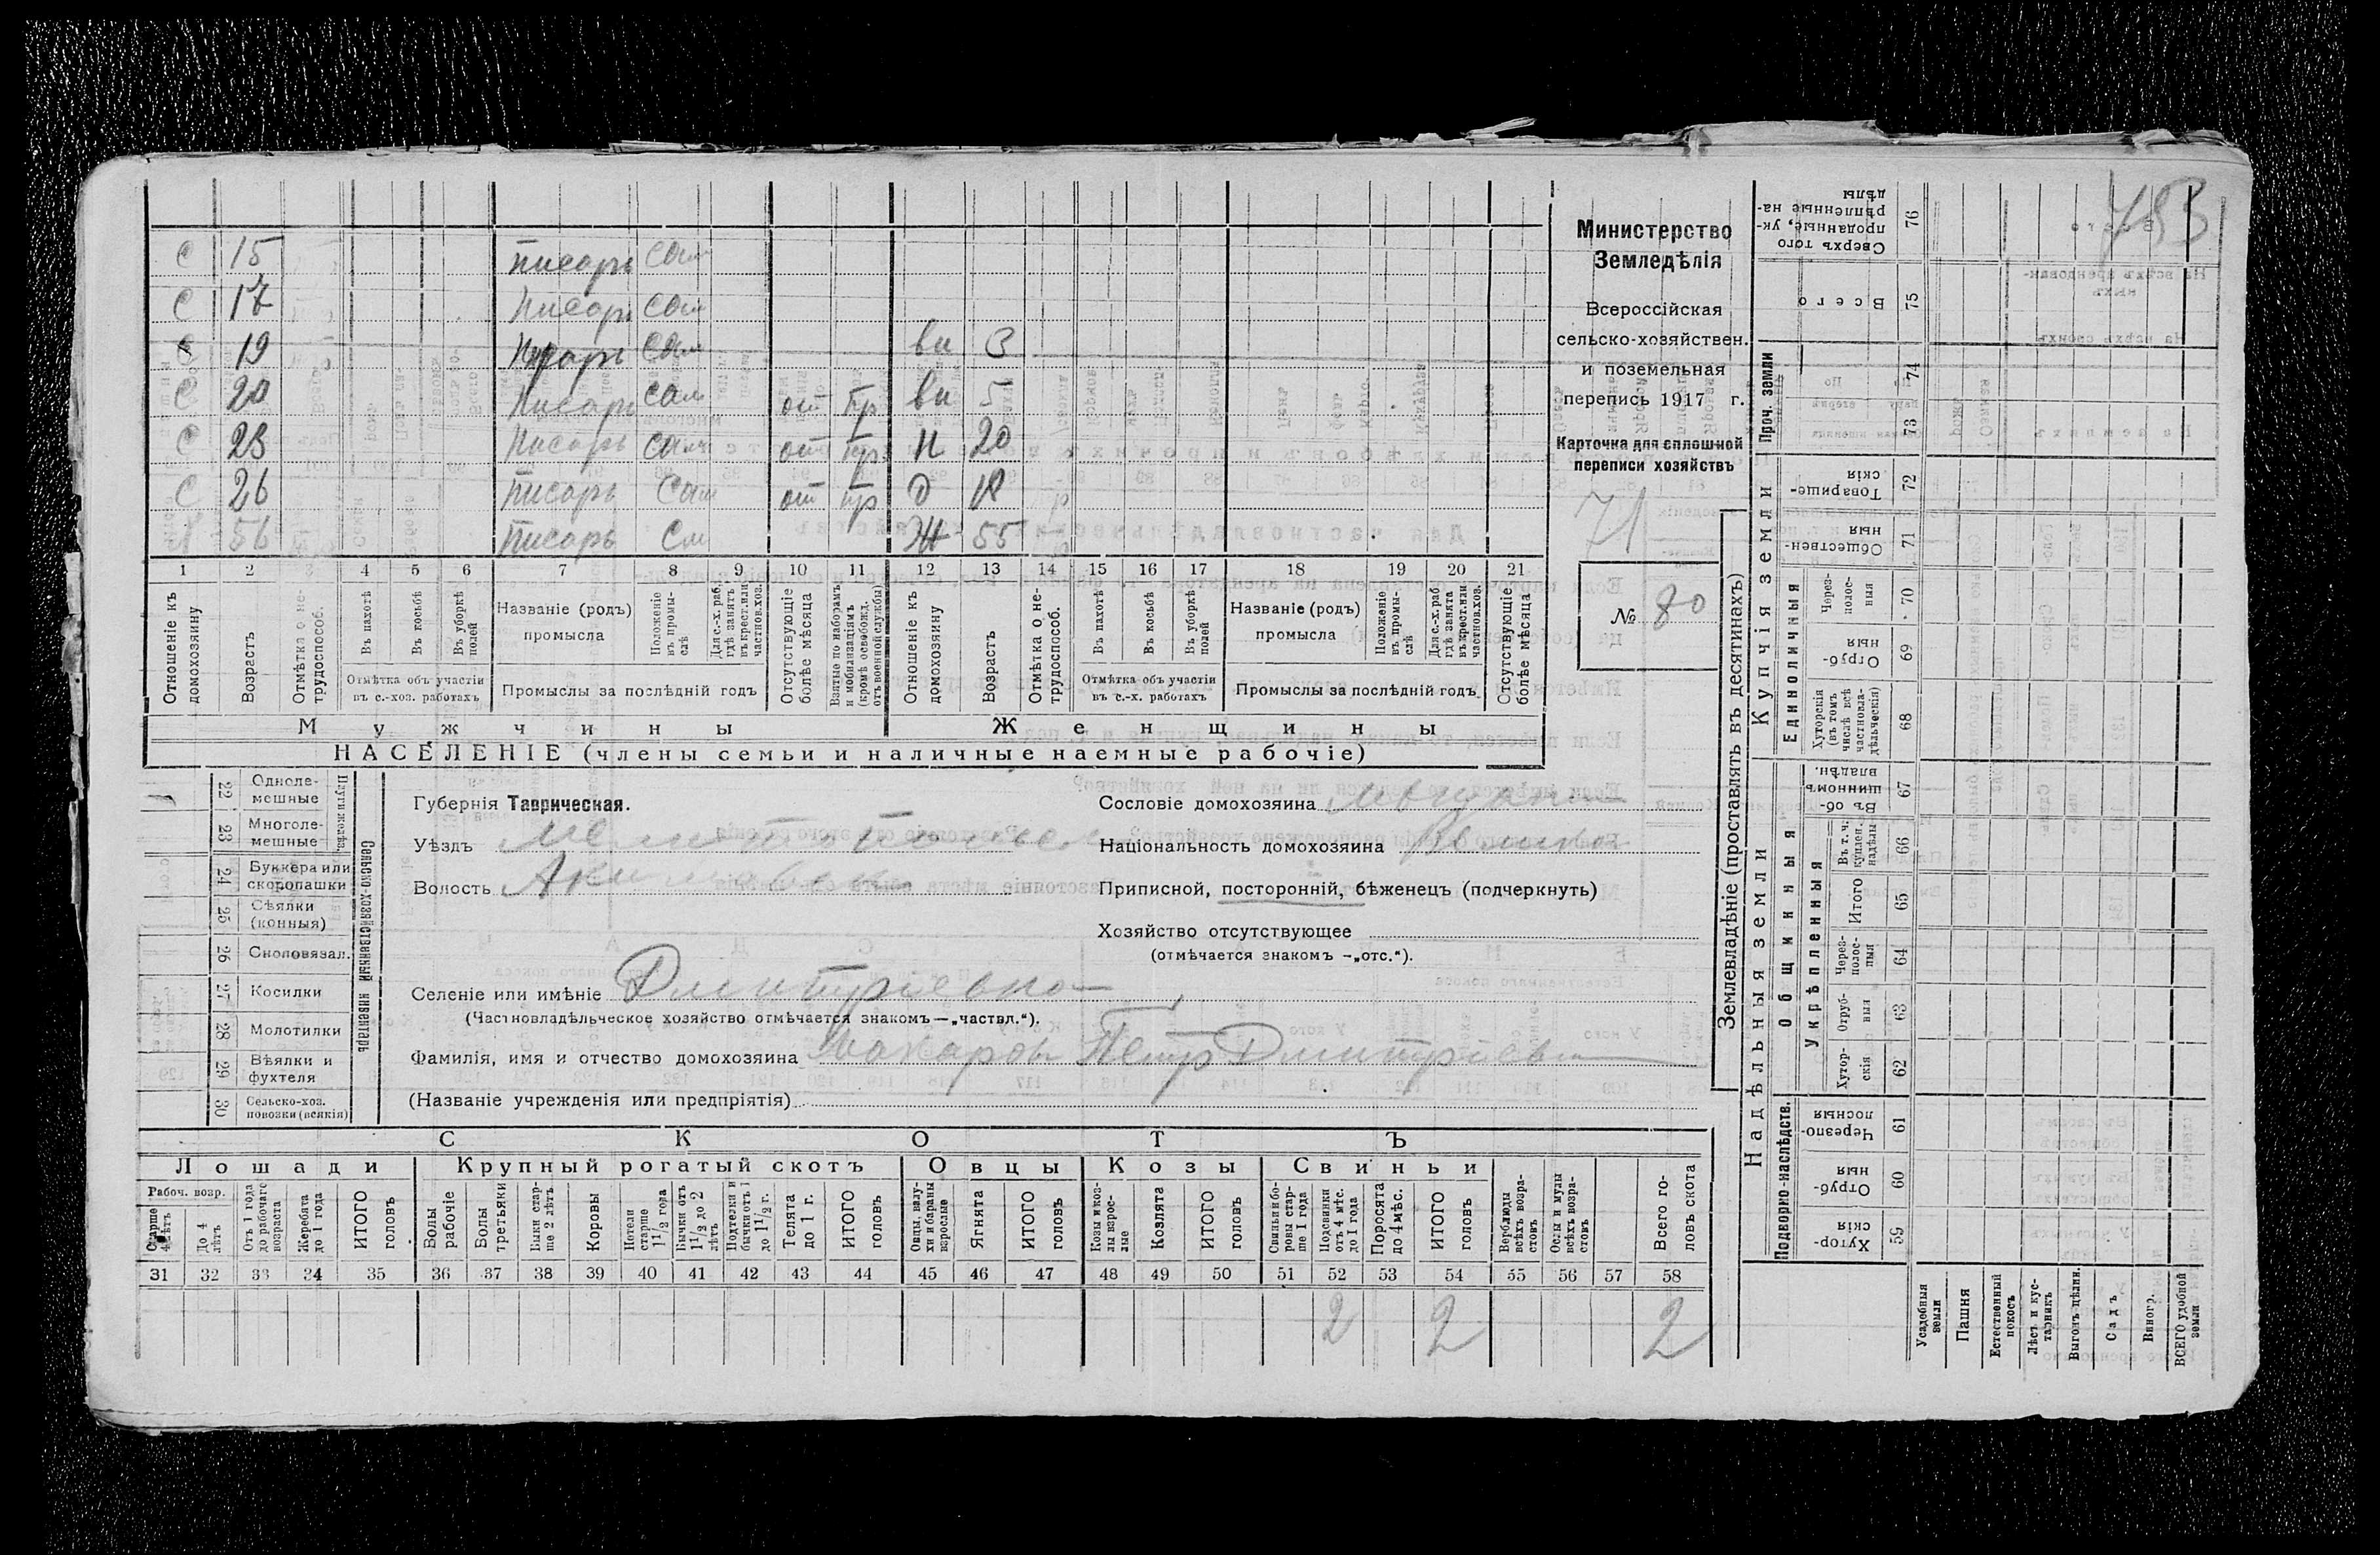 753
С 15 писарь сам
С 17 писарь сам
С 19 писарь сам вн 3
С 20 писарь сам от пр вн 5
С 23 писарь сам от пр н 20
С 26 писарь сам от пр д 18
56 писарь См Ж 55
1 2 3 4 5 6 7 8 9 10 11 12 13 14 15 16 17 18 19 20 21
Отношеніе къ домохозяину
Возрастъ
Отмѣтка о не-трудоспособ.
Въ пахотѣ
Въ косьбѣ
Въ уборкѣ полей
Отмѣтка объ участіи въ с.-хоз. работахъ
Названіе (родъ) промысла
Положеніе въ промы-слѣ
Для с.-х. раб. гдѣ занятъ въ крест. или частнов. хоз.
Промыслы за послѣдній годъ
Отсутствующіе болѣе мѣсяца
Взятые по наборамъ и мобилизаціямъ (кромѣ освобожд. отъ военной службы)
Отношеніе къ домохозяину
Возрастъ
Отмѣтка о не-трудоспособ.
Въ пахотѣ
Въ косьбѣ
Въ уборкѣ полей
Отмѣтка объ участіи въ с.-х. работахъ
Названіе (родъ) промысла
Положеніе въ промы-слѣ
Для с.-х. раб. гдѣ занята въ крест. или частнов. хоз.
Промыслы за послѣдній годъ
Отсутствующіе болѣе мѣсяца
Мужчины Женщины
НАСЕЛЕНІЕ (члены семьи и наличные наемные рабочіе)
Министерство
Земледѣлія
Всероссійская
сельско-хозяйствен.
и поземельная
перепись 1917 г.
Карточка для сплошной
переписи хозяйствъ
71
№ 80
Сельско-хозяйственный инвентарь
22 Одноле-мешные
23 Многоле-мешные
24 Буккера или скоропашки
25 Сѣялки (конныя)
26 Сноповязал.
27 Косилки
28 Молотилки
29 Вѣялки и фухтеля
30 Сельско-хоз. повозки (всякія)
Губернія Таврическая.
Уѣздъ Мелитопольск
Волость Акимовск
Сословіе домохозяина мещанин
Національность домохозяина
Приписной, посторонній, бѣженецъ (подчеркнуть)
Хозяйство отсутствующее
(отмѣчается знакомъ —„отс.“).
Селеніе или имѣніе Дмитріевка
(Частновладѣльческое хозяйство отмѣчается знакомъ—„частвл.“).
Фамилія, имя и отчество домохозяина Макаров Петр Дмитріевич
(Названіе учрежденія или предпріятія)
СКОТЪ
Лошади Крупный рогатый скотъ Овцы Козы Свиньи
Рабоч. возр.
Старше 4 лѣтъ
До 4 лѣтъ
Отъ 1 года до рабочаго возраста
Жеребята до 1 года
ИТОГО головъ
Волы рабочіе
Волы третьяки
Быки стар-ше 2 лѣтъ
Коровы
Нетели старше 1 1/2 года
Бычки отъ 1 1/2 до 2 лѣтъ
Подтелки и бычки отъ 1 до 1 1/2 г.
Телята до 1 г.
ИТОГО головъ
Овцы, валу-хи и бараны взрослые
Ягнята
ИТОГО головъ
Козы и коз-лы взрос-лые
Козлята
ИТОГО головъ
Свиньи и бо-ровы стар-ше 1 года
Подсвинки отъ 4 мѣс. до 1 года
Поросята до 4 мѣс.
ИТОГО головъ
Верблюды всѣхъ возра-стовъ
Ослы и мулы всѣхъ возра-стовъ
Всего го-ловъ скота
31 32 33 34 35 36 37 38 39 40 41 42 43 44 45 46 47 48 49 50 51 52 53 54 55 56 57 58
2 2 2
Землевладѣніе (проставлять въ десятинахъ)
Надѣльныя земли
Купчія земли
Проч. земли
Сверхъ того проданные, ук-рѣпленные на-дѣлы 76
Всего 75
74
73
Товарище-скія 72
Обществен-ныя 71
Единоличныя
Через-полос-ныя 70
Отруб-ныя 69
Хуторскія (въ томъ числѣ всѣ частновла-дѣльческія) 68
Общинныя
Въ об-щинномъ владѣн. 67
Укрѣпленныя
Въ т. ч. куплен. надѣлы 66
Итого 65
Через-полос-ныя 64
Отруб-ныя 63
Хутор-скія 62
Подворно-наслѣдств.
Черезпо-лосныя 61
Отруб-ныя 60
Хутор-скія 59
Усадебныя земли
Пашня
Естественный покосъ
Лѣсъ и кус-тарникъ
Выгонъ цѣлин.
Садъ
Виногр.
ВСЕГО удобной земли